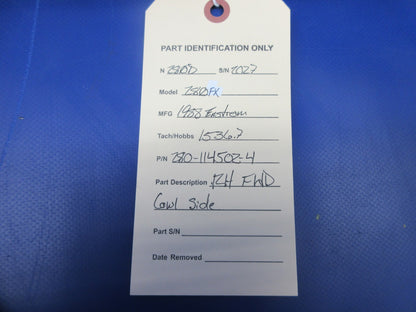 PART IDENTIFICATION ONLY
N 280D S/N 2027
Model 280FX
MFG 1988 Enstrom
Tach/Hobbs 1536.7
P/N 280-114502-4
Part Description RH FWD
Cowl Side
Part S/N
Date Removed